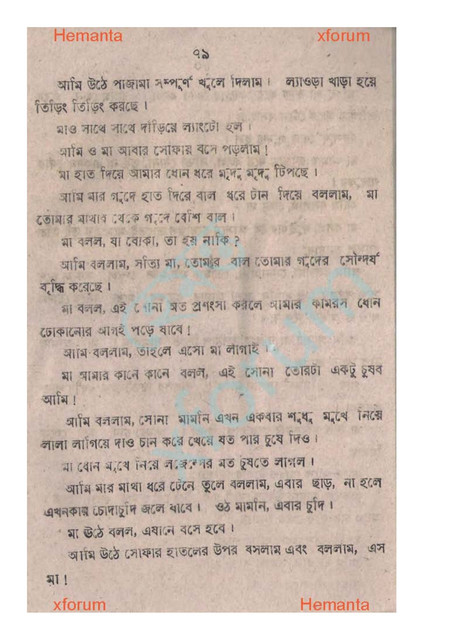 Hemanta
xforum
৭৯
আমি উঠে পাজামা সম্পূর্ণ খুলে দিলাম। ল্যাওড়া খাড়া হয়ে
তিড়িং তিড়িং করছে।
মাও সাথে সাথে দাঁড়িয়ে ল্যাংটো হল।
আমি ও মা আবার সোফায় বসে পড়লাম!
মা হাত দিয়ে আমার ধোন ধরে মৃদু মৃদু টিপছে।
আমি মার গুদে হাত দিয়ে বাল ধরে টান দিয়ে বললাম, মা
তোমার মাথার থেকে গুদে বেশি বাল।
মা বলল, যা বোকা, তা হয় নাকি?
আমি বললাম, সত্যি মা, তোমার বাল তোমার গুদের সৌন্দর্য
বৃদ্ধি করেছে।
মা বলল, এই সোনা অত প্রশংসা করলে আমার কামরস ধোন
ঢোকানোর আগই পড়ে যাবে!
আমি বললাম, তাহলে এসো মা লাগাই।
মা আমার কানে কানে বলল, এই সোনা তোরটা একটু চুষব
আমি!
আমি বললাম, সোনা মামনি এখন একবার শুধু মুখে নিয়ে
লালা লাগিয়ে দাও চান করে খেয়ে যত পার চুষে দিও।
মা ধোন মুখে নিয়ে লজেন্সের মত চুষতে লাগল।
আমি মার মাথা ধরে টেনে তুলে বললাম, এবার ছাড়, না হলে
এখনকার চোদাচুদি জলে যাবে। ওঠ মামনি, এবার চুদি।
মা উঠে বলল, এখানে বসে হবে।
আমি উঠে সোফার হাতলের উপর বসলাম এবং বললাম, এস
মা!
xforum
xforum
Hemanta